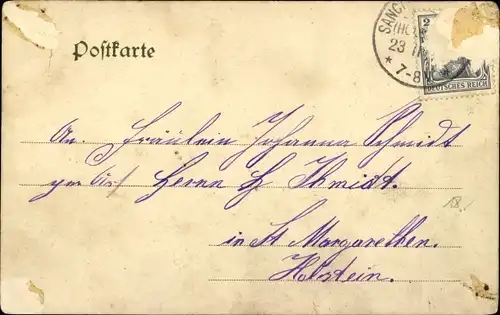 Postkarte
SANCT
(HO
23
* 7-8
2
DEUTSCHES REICH
An Fräulein Johanna Schmidt
Herrn H Schmidt.
in St Margarethen.
Holstein.
18.